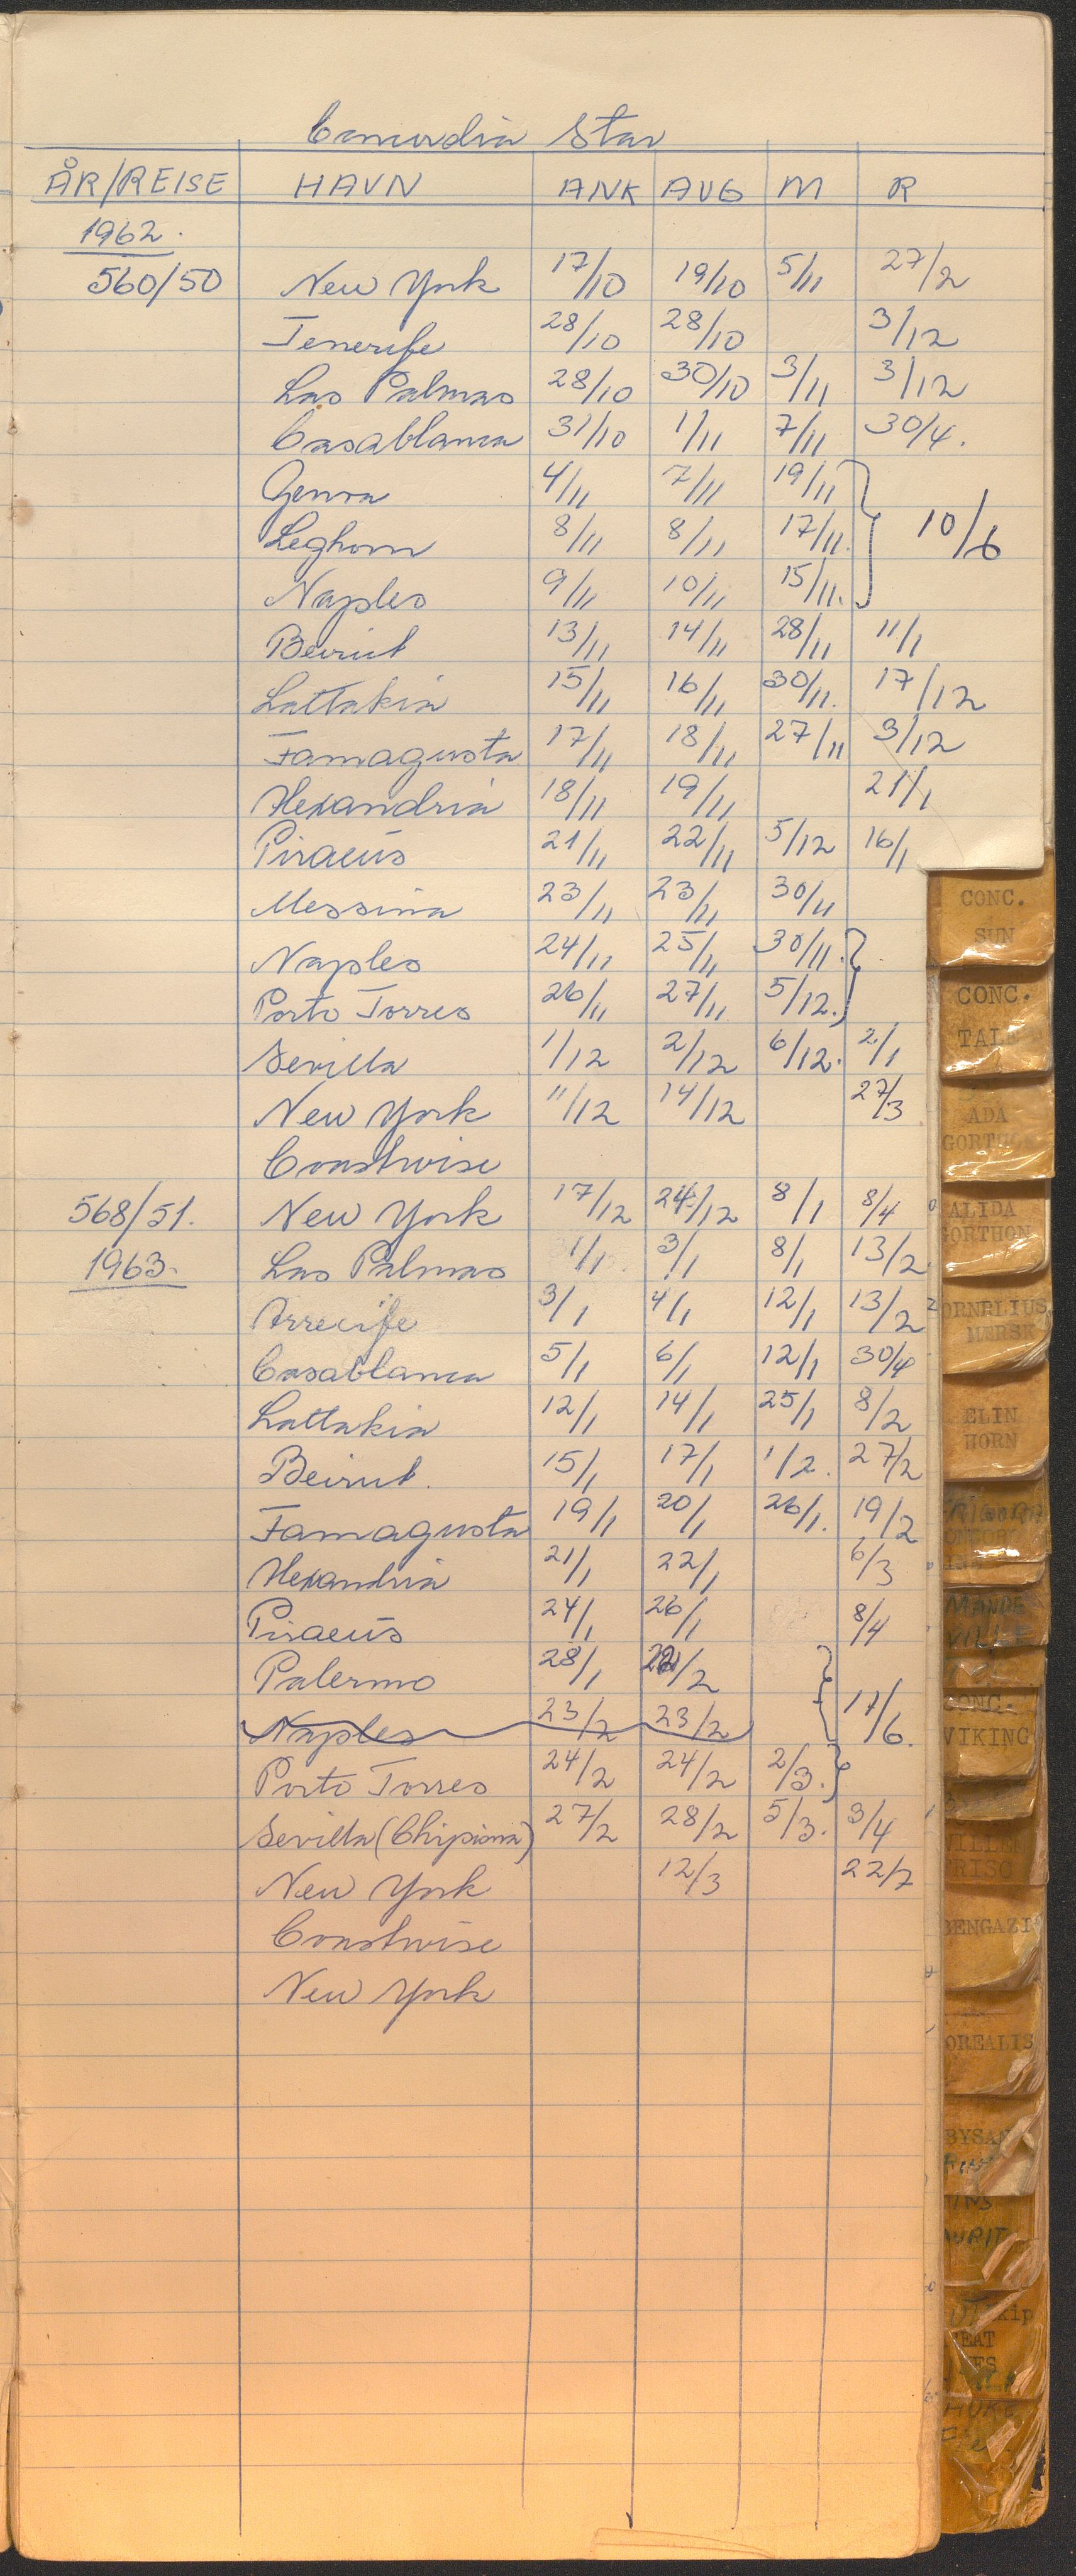 Concordia Star
ÅR/REISE HAVN ANK AVG M R
1962.
560/50 New York 17/10 19/10 5/11 27/2
Tenerife 28/10 28/10 3/12
Las Palmas 28/10 30/10 3/11 3/12
Casablanca 31/10 1/11 7/11 30/4.
Genoa 4/11 7/11 19/11
Leghorn 8/11 8/11 17/11. 10/6
Naples 9/11 10/11 15/11.
Beirut 13/11 14/11 28/11 11/1
Lattakia 15/11 16/11 30/11. 17/12
Famagusta 17/11 18/11 27/11 3/12
Alexandria 18/11 19/11 21/1
Piraeus 21/11 22/11 5/12 16/1
Messina 23/11 23/11 30/11
Naples 24/11 25/11 30/11.
Porto Torres 26/11 27/11 5/12.
Sevilla 1/12 2/12 6/12. 2/1
New York 11/12 14/12 27/3
Coastwise
568/51. New York 17/12 24/12 8/1 8/4
1963. Las Palmas 1/1 3/1 8/1 13/2
Arrecife 3/1 4/1 12/1 13/2
Casablanca 5/1 6/1 12/1 30/4
Lattakia 12/1 14/1 25/1 8/2
Beirut. 15/1 17/1 1/2. 27/2
Famagusta 19/1 20/1 26/1. 19/2
Alexandria 21/1 22/1 6/3
Piraeus 24/1 26/1 8/4
Palermo 28/1 /2
Naples 23/2 23/2 17/6.
Porto Torres 24/2 24/2 2/3.
Sevilla (Chipiona) 27/2 28/2 5/3. 3/4
New York 12/3 22/7
Coastwise
New York
CONC.
SUN
CONC.
TALE
ADA
GORTHON
ALIDA
GORTHON
ORNELIUS
MÆRSK
ELIN
HORN
MANDE
VILLE
CONC.
VIKING
BENGAZI
OREALIS